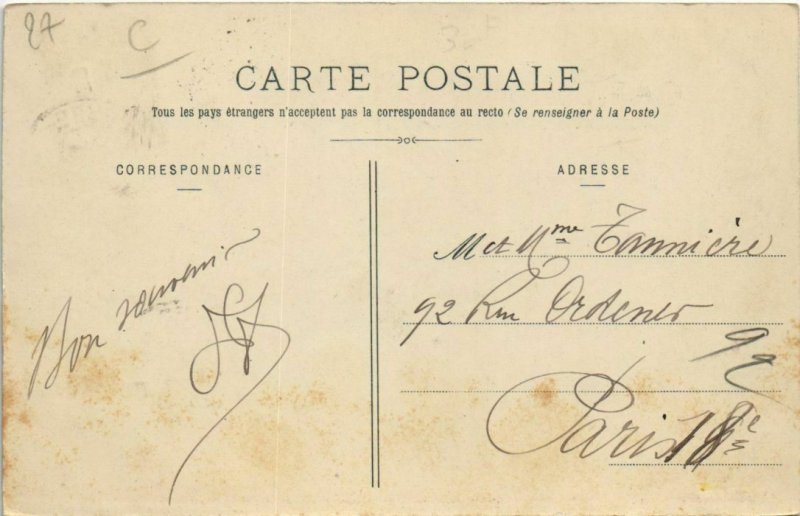 27
C
CARTE POSTALE
Tous les pays étrangers n'acceptent pas la correspondance au recto (Se renseigner à la Poste)
CORRESPONDANCE
Bon souvenir
ADRESSE
M et Mme Tannière
92 Rue Ordener
92
Paris 18e